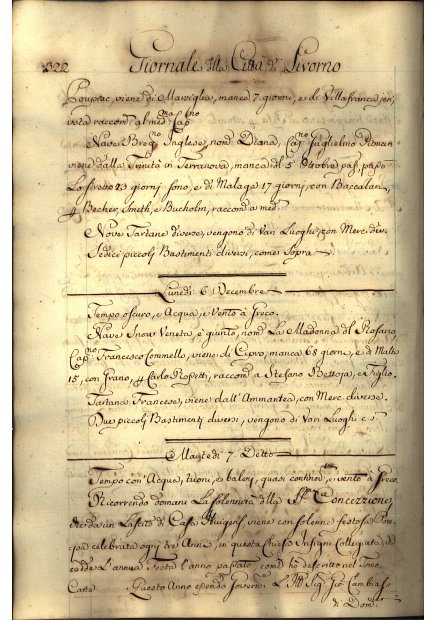 322 Giornale della Città di Livorno
viene di Marsiglia, manca 7. giorni, e di Villafranca jeri
raccom. al med.mo Cap.no
Nave Breg.no Inglese, nom. Diana, Cap.no Guglielmo
viene dalla Trinità in Terranova, manca dal 5 Ottobre, passò
Lo stretto 23 giorni sono, e da Malaga 17 giorni, con Baccalari,
p. Becher, Smith, e Bucholm, raccom. a med.
Nove Tartane diverse, vengono di Vari Luoghi, con Merc. div.
Sedici piccoli Bastimenti diversi, come Sopra
Lunedi 6 Decembre
Tempo oscuro, e Acqua, e Vento à Greco.
Nave Snow Veneta, è giunto, nom. La Madonna del Rosario,
Cap.no Francesco Commello, viene di Cipro, manca 68 giorni, e di Malta
15, con Grano, p. Carlo Rossetti, raccom. a Stefano Bettoja, e Figlio.
Tartana Francese, viene dall' Ammantea, con Merc. diverse.
Due piccoli Bastimenti diversi, vengono di Vari Luoghi
Martedi 7. Detto
Tempo con' Acqua, tuoni, e baleni, quasi continovi, e vento à Greco
Ricorrendo domani La Solennità della SS.ma Concezzione,
che da un Lascito di Casa Huigens viene con solenne festosa Pom-
pa celebrata ogni tre Anni, in questa Insigne Collegiata, e
cadde L'annua Festa l'anno passato, come hò descritto nel Tomo
Questo Anno essendo Govern.e L'Ill. Sig. Gio: Cambiaso
di Dom.